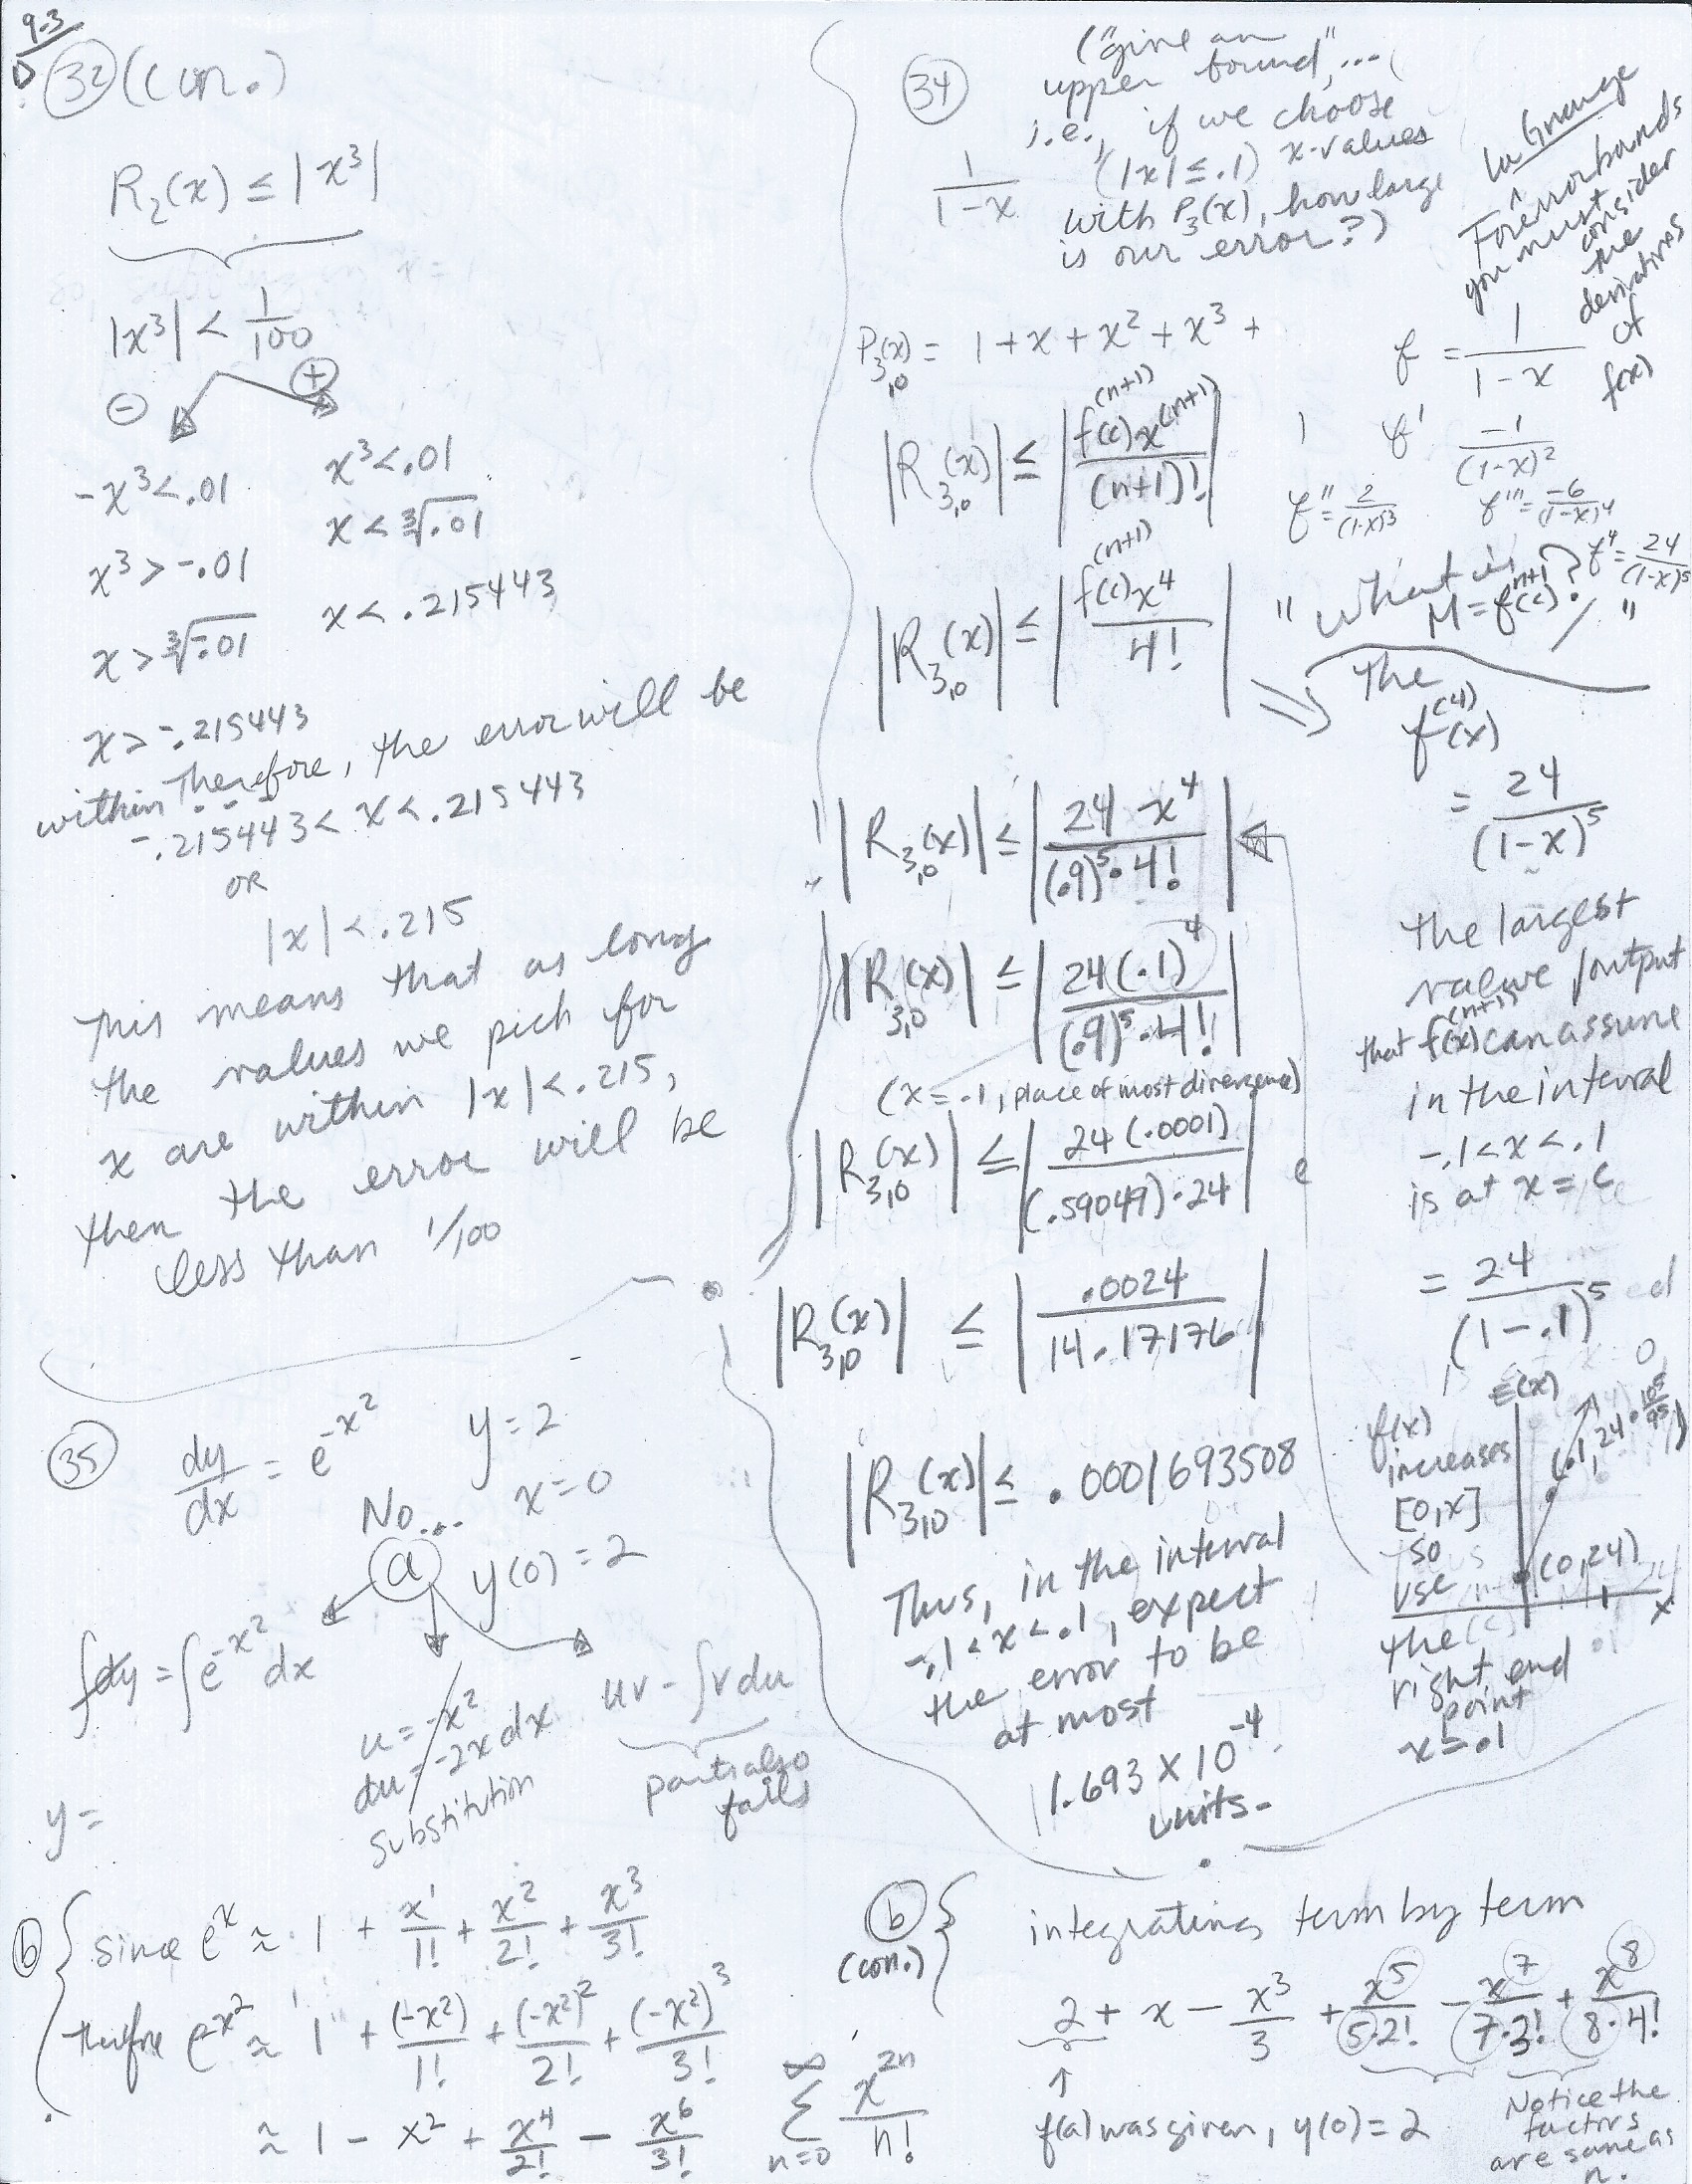 9-3
D
32 (con.)
R₂(x) ≤ |x³|
|x³| < 1/100
⊖ ⊕
-x³ < .01 x³ < .01
x³ > -.01 x < ∛.01
x > ∛-.01 x < .215443
x > -.215443
Therefore, the error will be
within
-.215443 < x < .215443
or
|x| < .215
This means that as long
the values we pick for
x are within |x| < .215,
then the error will be
less than 1/100
34
("give an
upper bound",...
i.e., if we choose
(|x| ≤ .1) x-values
with P₃(x), how large
is our error?)
1/(1-x)
LaGrange
For ^ error bounds
you must
consider
the
derivatives
of
f(x)
P₃,₀(x) = 1 + x + x² + x³ +
|R₃,₀(x)| ≤ |f⁽ⁿ⁺¹⁾(c) x⁽ⁿ⁺¹⁾/(n+1)!|
|R₃,₀(x)| ≤ |f⁽ⁿ⁺¹⁾(c) x⁴/4!|
f = 1/(1-x)
f' -1/(1-x)²
f'' = 2/(1-x)³ f''' = -6/(1-x)⁴
f⁴ = 24/(1-x)⁵
"What is
M = fⁿ⁺¹(c)?"
The
f⁽⁴⁾(x)
= 24/(1-x)⁵
the largest
value/output
that f⁽ⁿ⁺¹⁾(x) can assume
in the interval
-.1 < x < .1
is at x = c
= 24/(1-.1)⁵
|R₃,₀(x)| ≤ |24 · x⁴/((.9)⁵ · 4!)|
|R₃,₀(x)| ≤ |24(.1)⁴/((.9)⁵ · 4!)|
(x = .1, place of most divergence)
|R₃,₀(x)| ≤ |24(.0001)/((.59049) · 24)|
|R₃,₀(x)| ≤ |.0024/14.17176|
|R₃,₀(x)| ≤ .0001693508
Thus, in the interval
-.1 < x < .1, expect
the error to be
at most
1.693 × 10⁻⁴
units.
f(x)
increases
[0,x]
so
use
the
right end
point
x = .1
(0,24)
x
35
dy/dx = e^(-x²) y = 2
x = 0
No...
a y(0) = 2
∫dy = ∫e^(-x²) dx
u = -x²
du = -2x dx
substitution
uv - ∫v du
parts also
fails
y =
b since eˣ ≈ 1 + x¹/1! + x²/2! + x³/3!
therefore e^(-x²) ≈ 1 + (-x²)/1! + (-x²)²/2! + (-x²)³/3!
≈ 1 - x² + x⁴/2! - x⁶/3! ∞ Σ n=0 x²ⁿ/n!
b
(con.)
integrating term by term
2 + x - x³/3 + x⁵/(5·2!) - x⁷/(7·3!) + x⁸/(8·4!)
↑
f(a) was given, y(0) = 2
Notice the
factors
are same as
n.